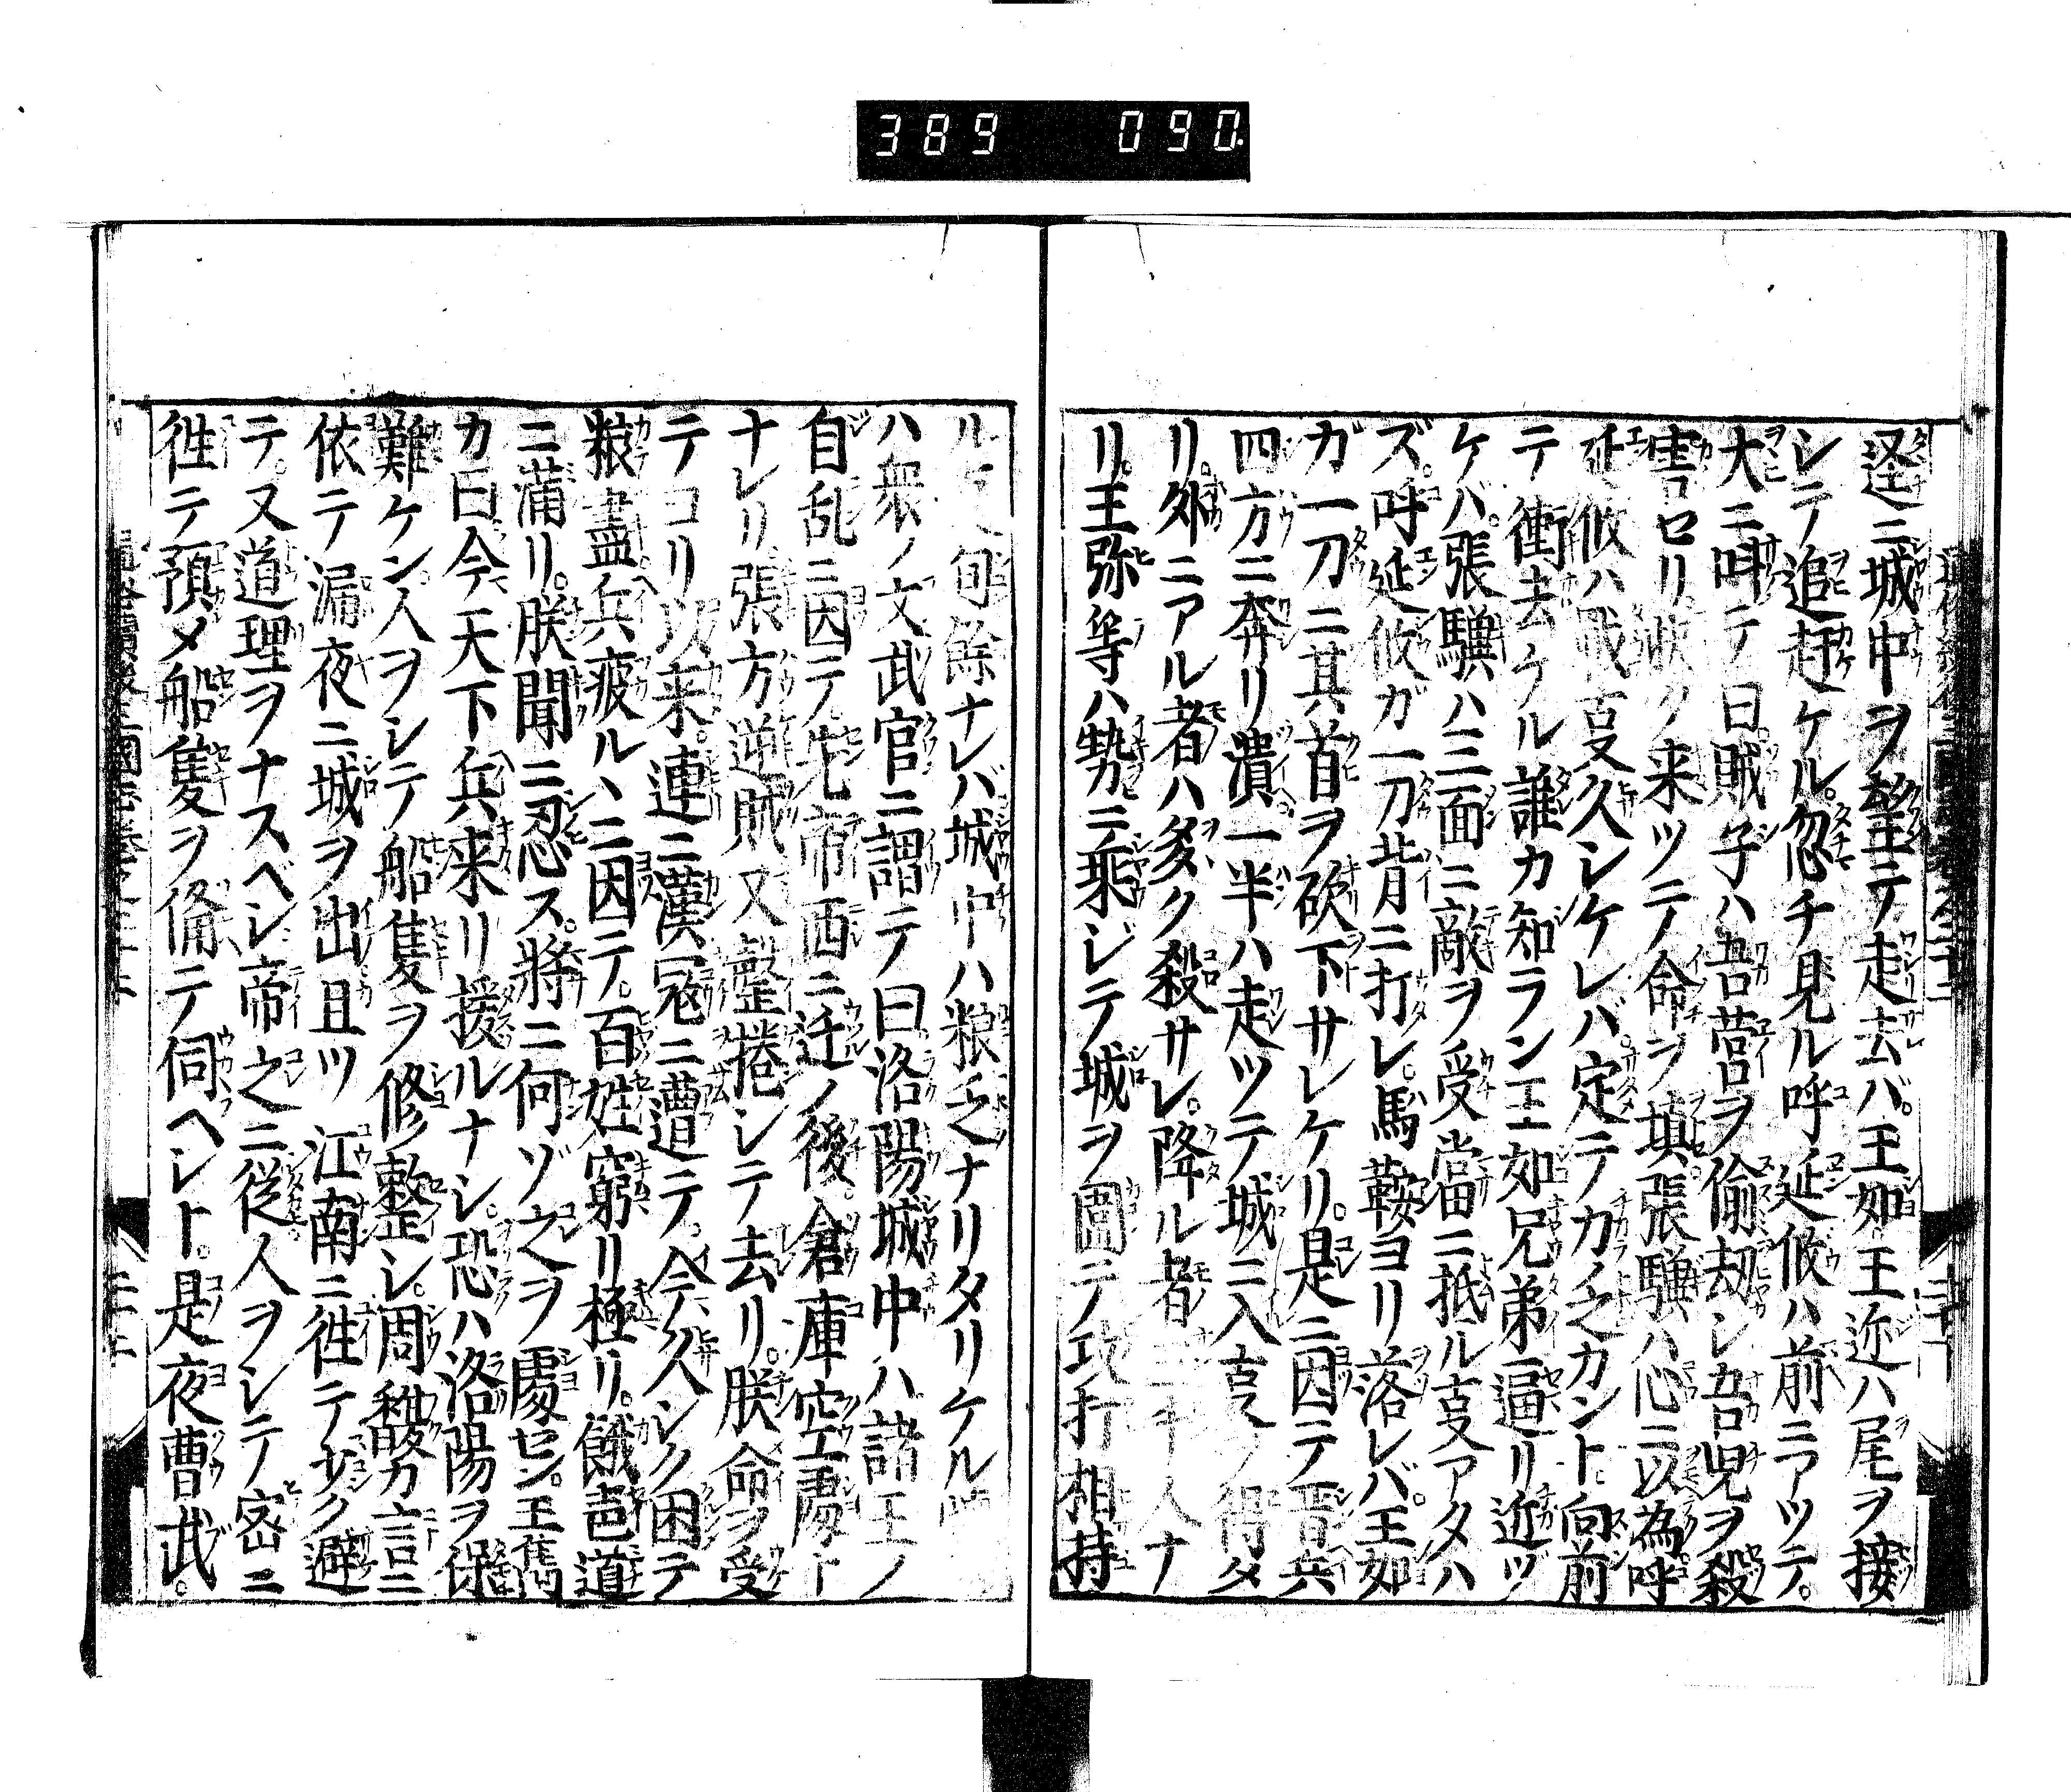 389 090
逕ニ城中ヲ望テ走去バ。王如王迩ハ尾ヲ接
シテ追赶ケル。忽チ見ル呼延攸ハ前ニアツテ。
大ニ叫テ曰賊子ハ吾営ヲ偷劫シ吾児ヲ殺
害セリ来ツテ命ヲ填張騏ハ心ニ以為呼
延攸ハ戦事久シケレバ。定テ力乏カント。向前
テ衝去ケル誰カ知ラン王如兄弟逼リ近ヅ
ケバ。張騏ハ三面ニ敵ヲ受當ニ抵ル事アタハ
ズ。呼延攸ガ一刀背ニ打レ。馬鞍ヨリ落レバ。王如
ガ一刀ニ其首ヲ砍下サレケリ。是ニ因テ晋兵
四方ニ奔リ潰一半ハ走ツテ城ニ入事ヲ得タ
リ。外ニアル者ハ多ク殺サレ。降ル者三千人ナ
リ。王弥等ハ勢ニ乗ジテ城ヲ圍テ攻打相持
旬餘ナレバ城中ハ粮乏ナリタリケル
ハ衆ノ文武官ニ謂テ曰洛陽城中ハ諸王ノ
自乱ニ因テ。先帝西ニ迁ノ後。倉庫空虚ト
ナレリ。張方逆賊又盡捲シテ去リ。朕命ヲ受
テコリ以来。連ニ漢冦ニ遭テ。今久シク困テ
粮盡兵疲ルヽニ因テ。百姓窮リ極リ。餓莩道
ニ蒲リ。朕聞ニ忍ス。將ニ何ゾ之ヲ處セン。王雋
カ曰今天下兵来リ援ルナシ。恐ハ洛陽ヲ保
難ケン。人ヲシテ船隻ヲ修整シ。周馥カ言ニ
依テ漏夜ニ城ヲ出且ツ江南ニ徃テ少ク避
テ。又道理ヲナスベシ帝之ニ從人ヲシテ密ニ
徃テ預メ船隻ヲ俻テ伺ヘシト。是夜曹武。